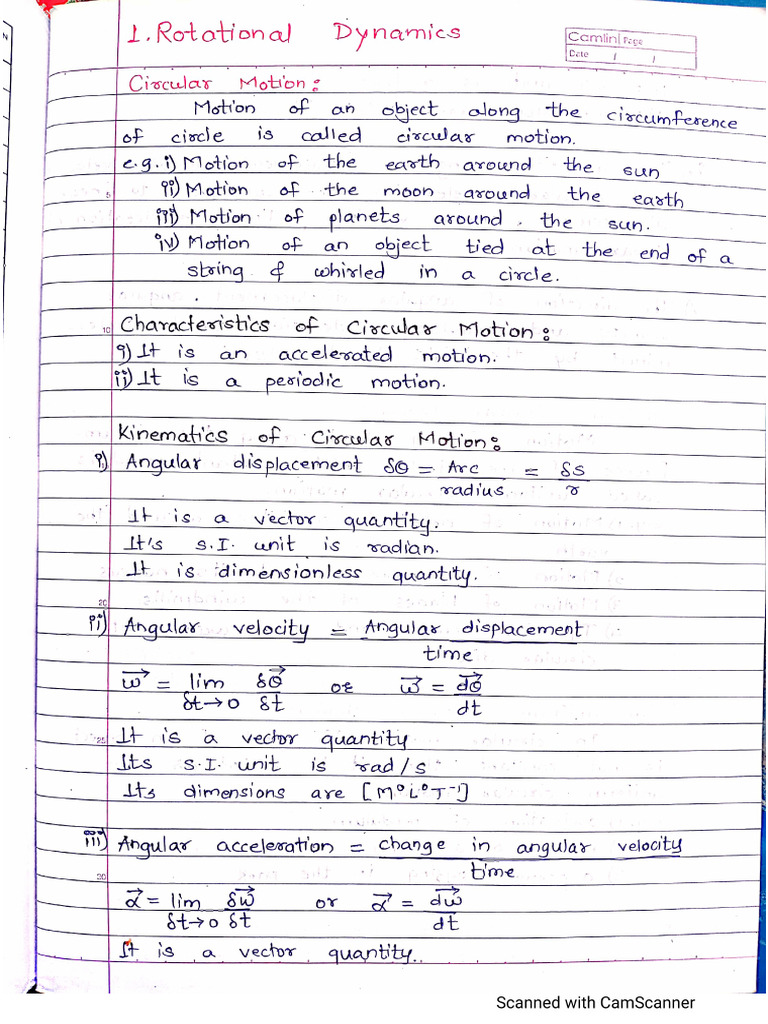 1. Rotational Dynamics
Camlin Page
Date / /
Circular Motion:
Motion of an object along the circumference
of circle is called circular motion.
e.g. i) Motion of the earth around the sun
ii) Motion of the moon around the earth
iii) Motion of planets around the sun.
iv) Motion of an object tied at the end of a
string & whirled in a circle.
Characteristics of Circular Motion:
i) It is an accelerated motion.
ii) It is a periodic motion.
Kinematics of Circular Motion:
i) Angular displacement δθ = Arc/radius = δs/r
It is a vector quantity.
It's S.I. unit is radian.
It is dimensionless quantity.
ii) Angular velocity = Angular displacement/time
ω⃗ = lim δt→0 δθ⃗/δt or ω⃗ = dθ⃗/dt
It is a vector quantity
Its S.I. unit is rad/s
Its dimensions are [M⁰L⁰T⁻¹]
iii) Angular acceleration = change in angular velocity/time
α⃗ = lim δt→0 δω⃗/δt or α⃗ = dω⃗/dt
It is a vector quantity.
Scanned with CamScanner